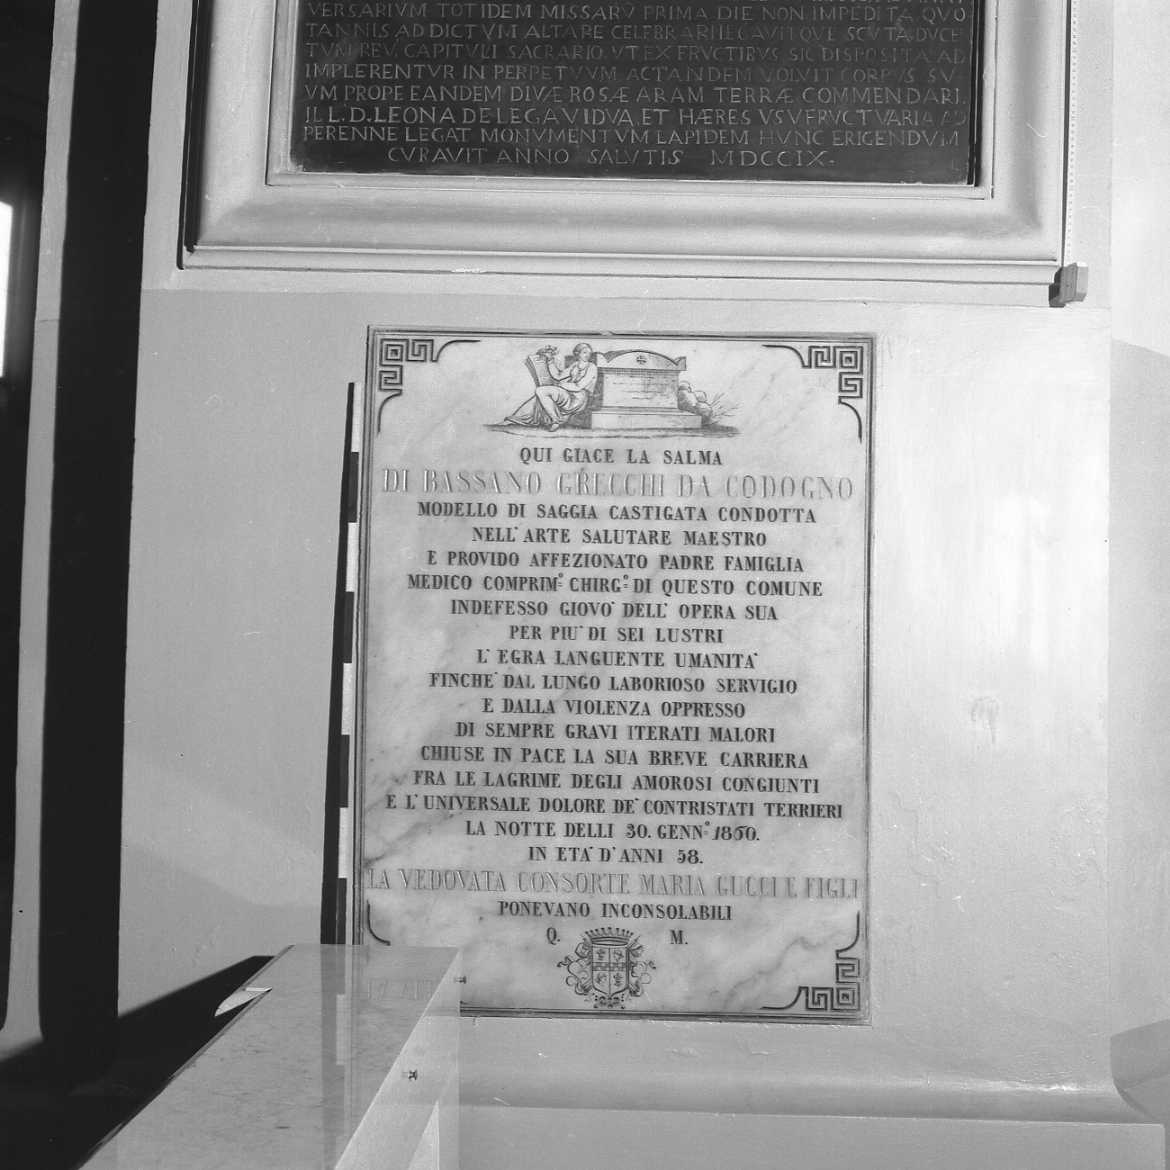 VERSARIVM TOTIDEM MISSARV PRIMA DIE NON IMPEDITA QVO
TANNIS AD DICTVM ALTARE CELEBRARI
TVM REV. CAPITVLI SACRARIO. VT EX FRVCTIBVS SIC DISPOSITA AD
IMPLERENTVR IN PERPETVVM ACTANDEM VOLVIT CORPVS SV
VM PROPE EANDEM DIVÆ ROSÆ ARAM TERRÆ COMMENDARI.
ILL.D.LEONA DE LEGA VIDVA, ET HÆRES VSVFRVCTVARIA AD
PERENNE LEGAT MONVMENTVM LAPIDEM HVNC ERIGENDVM
CVRAVIT ANNO SALVTIS MDCCIX.
QUI GIACE LA SALMA
DI BASSANO GRECCHI DA CODOGNO
MODELLO DI SAGGIA CASTIGATA CONDOTTA
NELL' ARTE SALUTARE MAESTRO
E PROVIDO AFFEZIONATO PADRE FAMIGLIA
MEDICO COMPRIM.º CHIRG.º DI QUESTO COMUNE
INDEFESSO GIOVO' DELL' OPERA SUA
PER PIU' DI SEI LUSTRI
L' EGRA LANGUENTE UMANITA'
FINCHE' DAL LUNGO LABORIOSO SERVIGIO
E DALLA VIOLENZA OPPRESSO
DI SEMPRE GRAVI ITERATI MALORI
CHIUSE IN PACE LA SUA BREVE CARRIERA
FRA LE LAGRIME DEGLI AMOROSI CONGIUNTI
E L' UNIVERSALE DOLORE DE' CONTRISTATI TERRIERI
LA NOTTE DELLI 30. GENN.º 1850.
IN ETA' D' ANNI 58.
LA VEDOVATA CONSORTE MARIA GUCCI E FIGLI
PONEVANO INCONSOLABILI
Q. M.